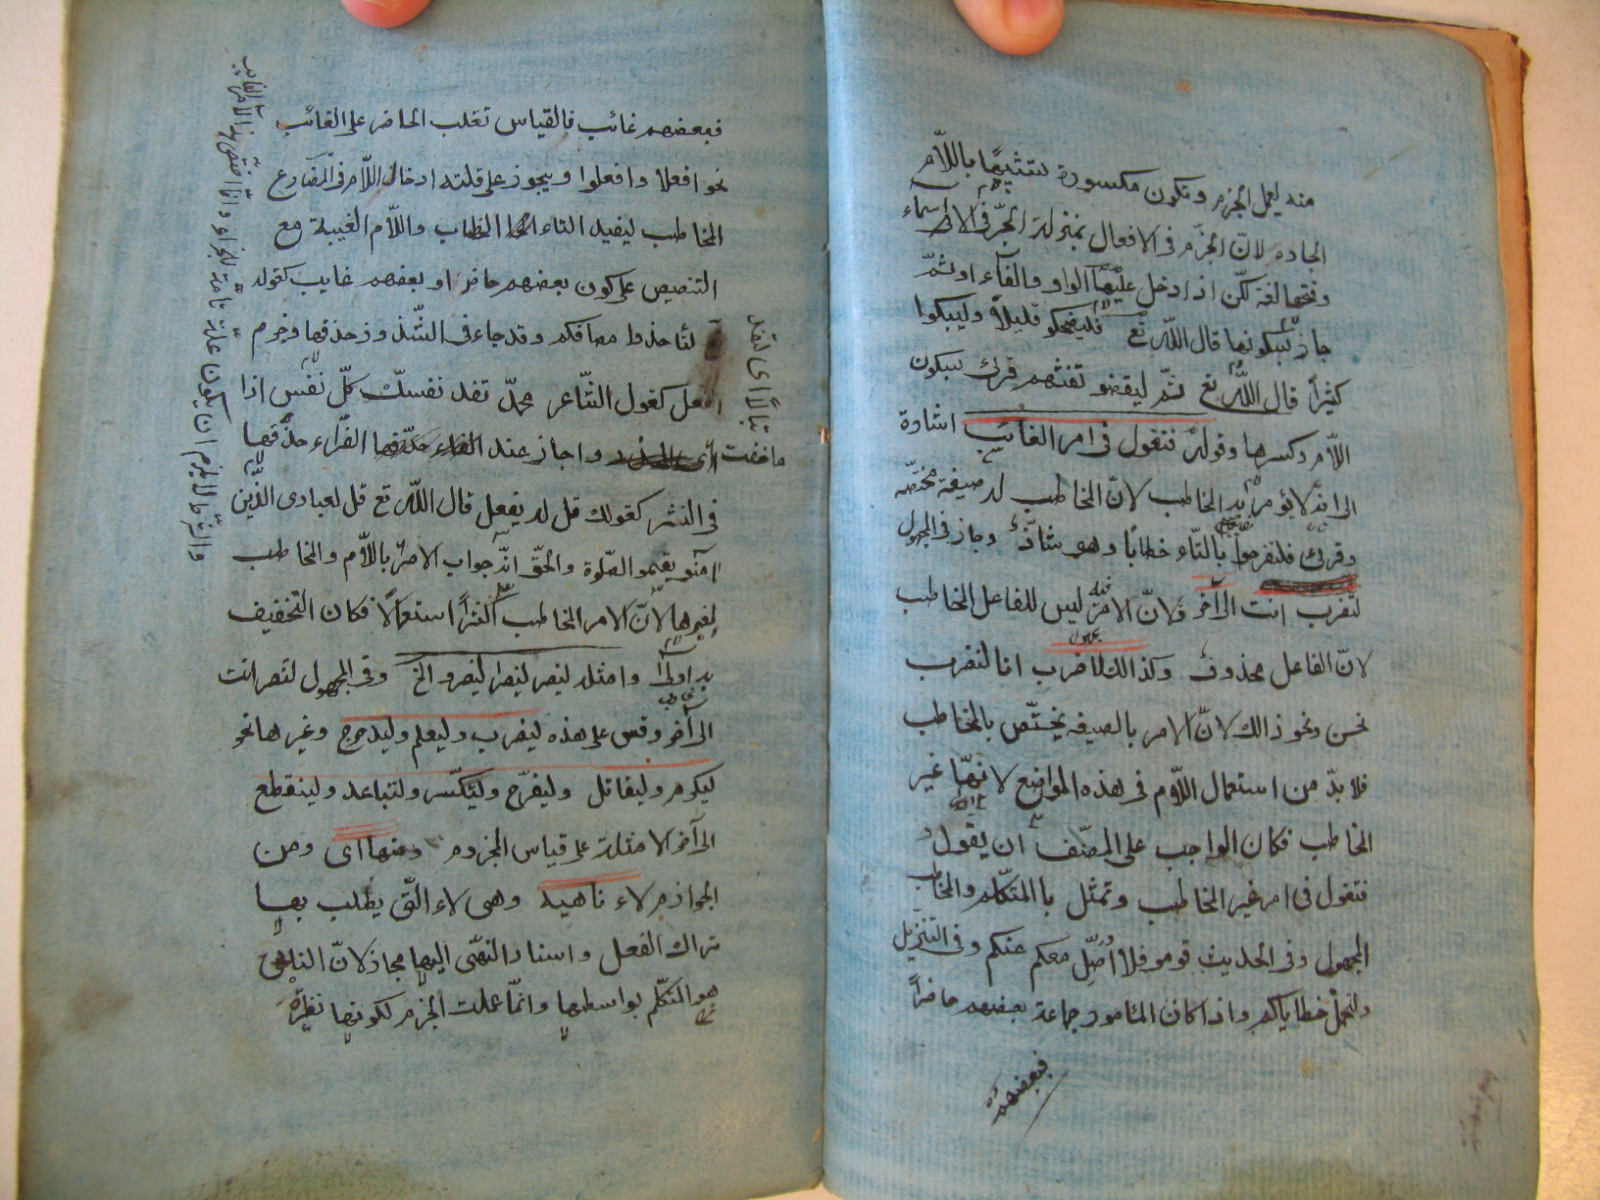 منه ليعمل الجزم وتكون مكسورة تشبيها باللام
الجاره لان الجزم في الافعال بمنزلة الجر في الاسماء
وفتحها لغة لكن اذا دخل عليها الواو والفاء او ثم
جاز سكونها قال الله تع فليضحكو قليلا وليبكوا
كثيرا قال الله تع ثم ليقضو تفثهم قرئ بسكون
اللام وكسرها وقوله فتقول في امر الغائب اشارة
الى انه لا يؤمر به المخاطب لان المخاطب له صيغة مختصه
وقرئ فلتفرحوا بالتاء خطابا وهو شاذ وجاز في المجهول
لتضرب انت الى آخره لان الامر ليس للفاعل المخاطب
لان الفاعل محذوف وكذالك لاضرب انا لنضرب
نحن ونحو ذالك لان الامر بالصيغه يختص بالمخاطب
فلا بد من استعمال اللام في هذه المواضع لانها غير
المخاطب فكان الواجب على المصنف ان يقول
فتقول في امر غير المخاطب وتمثل باالمتكلم والمخاطب
المجهول وفي الحديث قومو فلا اصل معكم عنكم وفي التنزيل
ولنحمل خطاياكم واذا كان المامور جماعة بعضهم حاضرا
فبعضهم
فبعضهم غائب فالقياس تغلب الحاضر على الغائب
نحو افعلا وافعلوا ويجوز على قلته ادخال اللام في المضارع
المخاطب ليفيد التاء الخطاب واللام الغيبة مع
التنصيص على كون بعضهم حاضر او بعضهم غايب كقوله
لتأخذوا مصافكم وقد جاء في الشذ وذ حذفها وجزم
الفعل كقول الشاعر محمد تفد نفسك كل نفس اذا
ما خفت واجاز عند الفراء حذفها
في النثر كقولك قل له يفعل قال الله تع قل لعبادى الذين
آمنو يقيمو الصلوة والحق انه جواب الامر باللام والمخاطب
لغيرها لان الامر المخاطب اكثر استعمالا فكان التخفيف
به اولى وامثله لينصر لينصرا لينصرو الخ وفي المجهول لتنصر انت
الى آخره وقس على هذه ليضرب وليعلم وليدحرج وغيرها نحو
ليكرم وليقاتل وليفرح وليتكسر ولتباعد ولينقطع
الى آخر الامثلة على قياس المجزوم ومنها اى ومن
الجوازم لاء ناهيه وهي لاء التي يطلب بها
تراك الفعل واسناد النهي اليها مجاز لان الناهي
هو المتكلم بواسطها وانما عملت الجزم لكونها نظيرة
تبالا اى لفقد